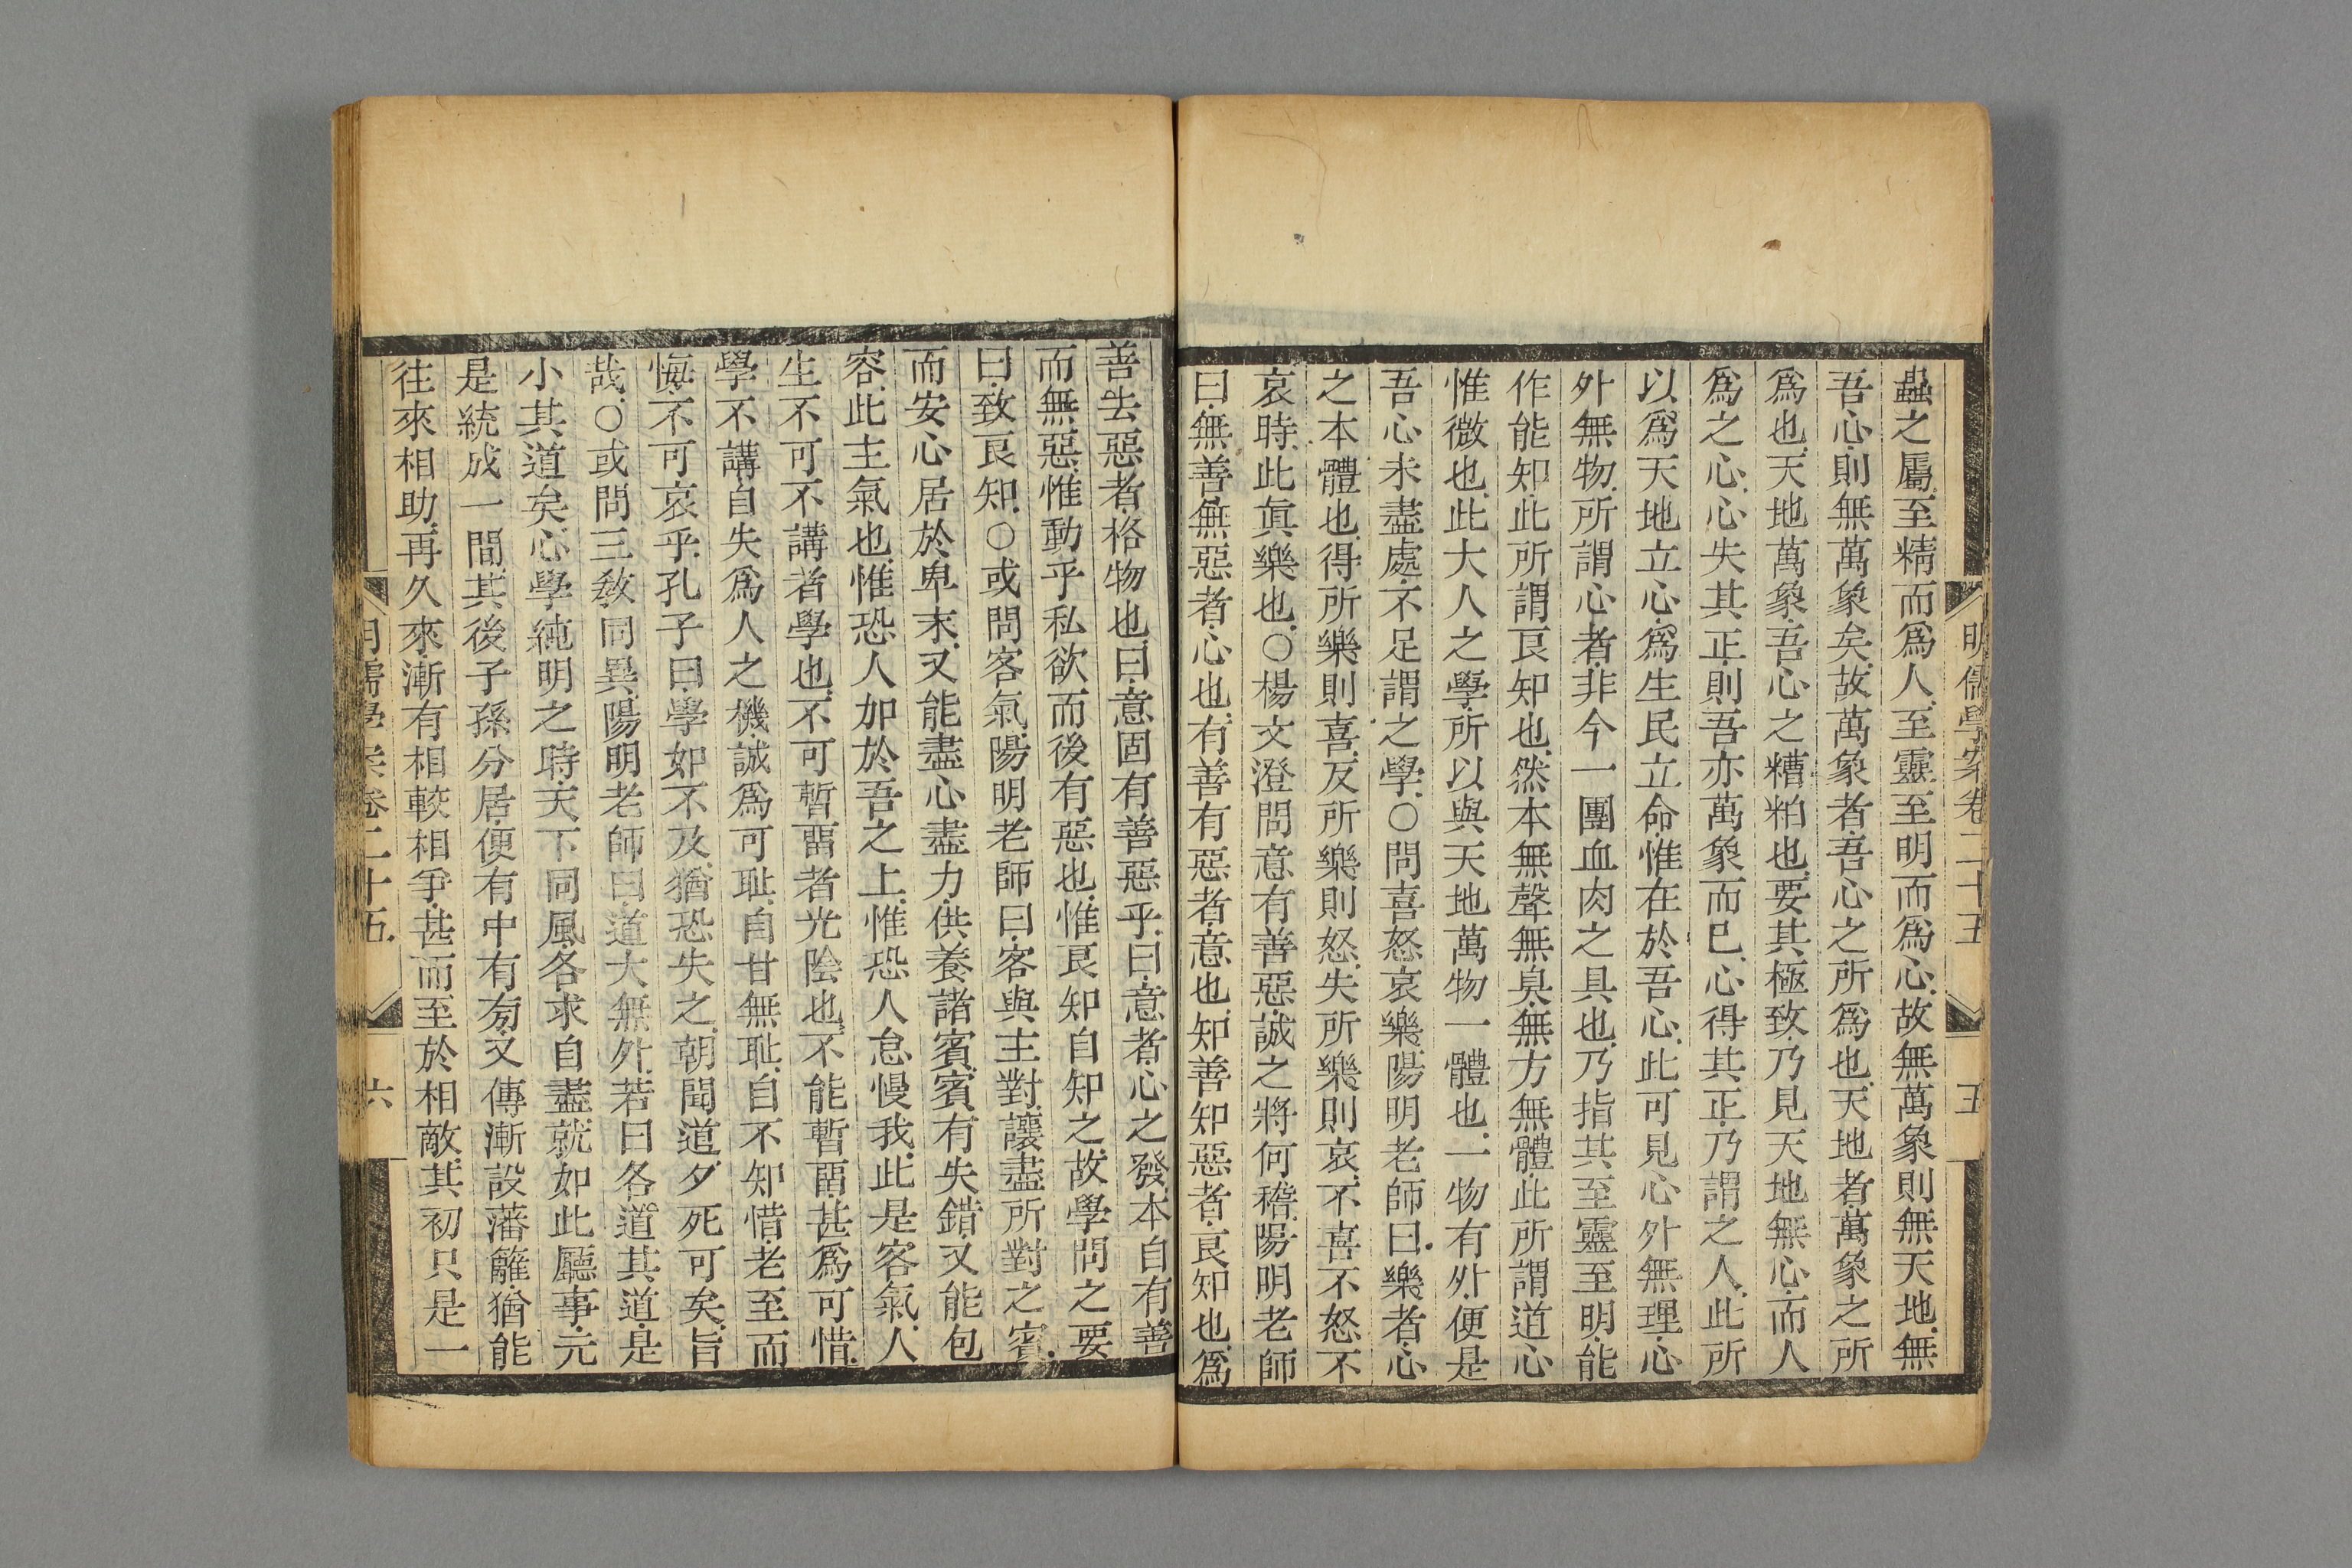 明儒學案卷二十五
五
蟲之屬.至精而爲人.至靈至明而爲心.故無萬象則無天地.無
吾心.則無萬象矣.故萬象者.吾心之所爲也.天地者.萬象之所
爲也.天地萬象.吾心之糟粕也.要其極致.乃見天地無心.而人
爲之心.心失其正.則吾亦萬象而已.心得其正.乃謂之人.此所
以爲天地立心.爲生民立命.惟在於吾心.此可見心外無理.心
外無物.所謂心者.非今一團血肉之具也.乃指其至靈至明.能
作能知.此所謂良知也.然本無聲無臭.無方無體.此所謂道心
惟微也.此大人之學.所以與天地萬物一體也.一物有外.便是
吾心未盡處.不足謂之學.○問喜怒哀樂.陽明老師曰.樂者.心
之本體也.得所樂則喜.反所樂則怒.失所樂則哀.不喜不怒不
哀時.此眞樂也.○楊文澄問意有善惡.誠之將何稽.陽明老師
曰.無善無惡者.心也.有善有惡者.意也.知善知惡者.良知也.爲
善去惡者.格物也.曰.意固有善惡乎.曰.意者心之發.本自有善
而無惡.惟動乎私欲而後有惡也.惟良知自知之.故學問之要
曰.致良知.○或問客氣.陽明老師曰.客與主對.讓盡所對之賓.
而安心居於卑末.又能盡心盡力.供養諸賓.賓有失錯.又能包
容.此主氣也.惟恐人加於吾之上.惟恐人怠慢我.此是客氣.人
生不可不講者學也.不可暫畱者光陰也.不能暫畱.甚爲可惜.
學不講.自失爲人之機.誠爲可耻.自甘無耻.自不知惜.老至而
悔.不可哀乎.孔子曰.學如不及.猶恐失之.朝聞道.夕死可矣.旨
哉.○或問三敎同異.陽明老師曰.道大無外.若曰各道其道.是
小其道矣.心學純明之時.天下同風.各求自盡.就如此廳事.元
是統成一間.其後子孫分居.便有中有旁.又傳漸設藩籬.猶能
往來相助.再久來.漸有相較相爭.甚而至於相敵.其初只是一
明儒學案卷二十五
六